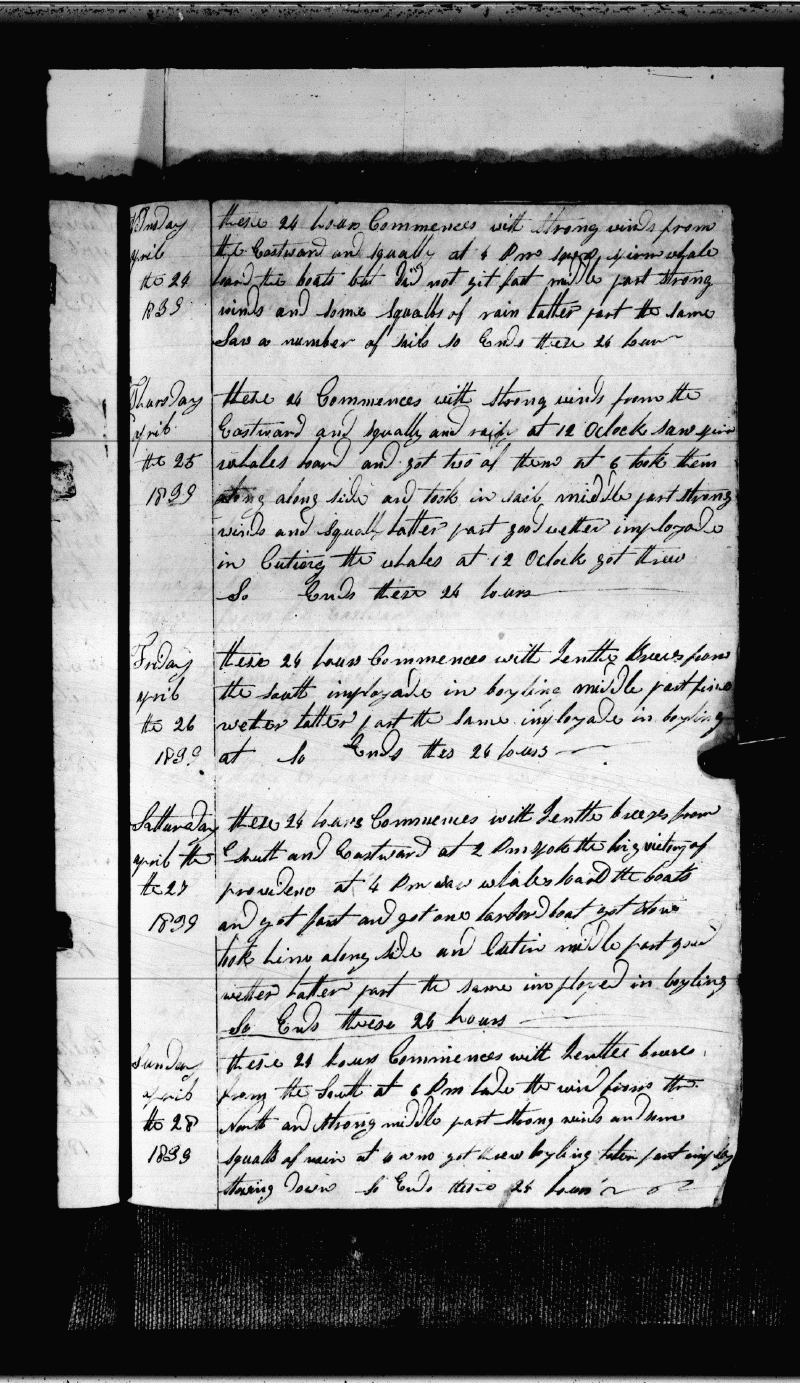 Wednsday these 24 hours Commences with strong winds from
april the Eastward and squally at 4 Pm saw sperm whale
the 24 loard the boats but did not git fast middle part strong
1839 winds and some squalls of rain latter part the same
Saw a number of sails so Ends these 24 hours
Thursday these 24 Commences with strong winds from the
april Eastward and squally and rainy at 12 Oclock saw sperm
the 25 whales loard and got two of them at 6 took them
1839 along along side and took in sail middle part strong
winds and squally latter part good wetter imployade
in Cutiong the whales at 12 Oclock got threw
So Ends these 24 hours
Friday these 24 hours Commences with Jentle Brees from
april the south imployade in boyling middle part fine
the 26 wetter latter part the same imployade in boyling
1839 at So Ends thes 24 hours
Satturaday these 24 hours Commences with Jentle breezes from
april the South and Eastward at 2 Pm spoke the brig victory of
the 27 providenc at 4 Pm saw whales loard the boats
1839 and got fast and got one larbord boat got stove
took him along side and Cut in middle part good
wetter latter part the same imployed in boyling
So Ends these 24 hours
Sunday these 24 hours Commences with Jenttle breses
april from the South at 6 Pm took the wind from the
the 28 North and Strong middle part strong winds and some
1839 squalls of rain at 4 am got threw boyling later part imploy
stowing down So Ends these 24 hours